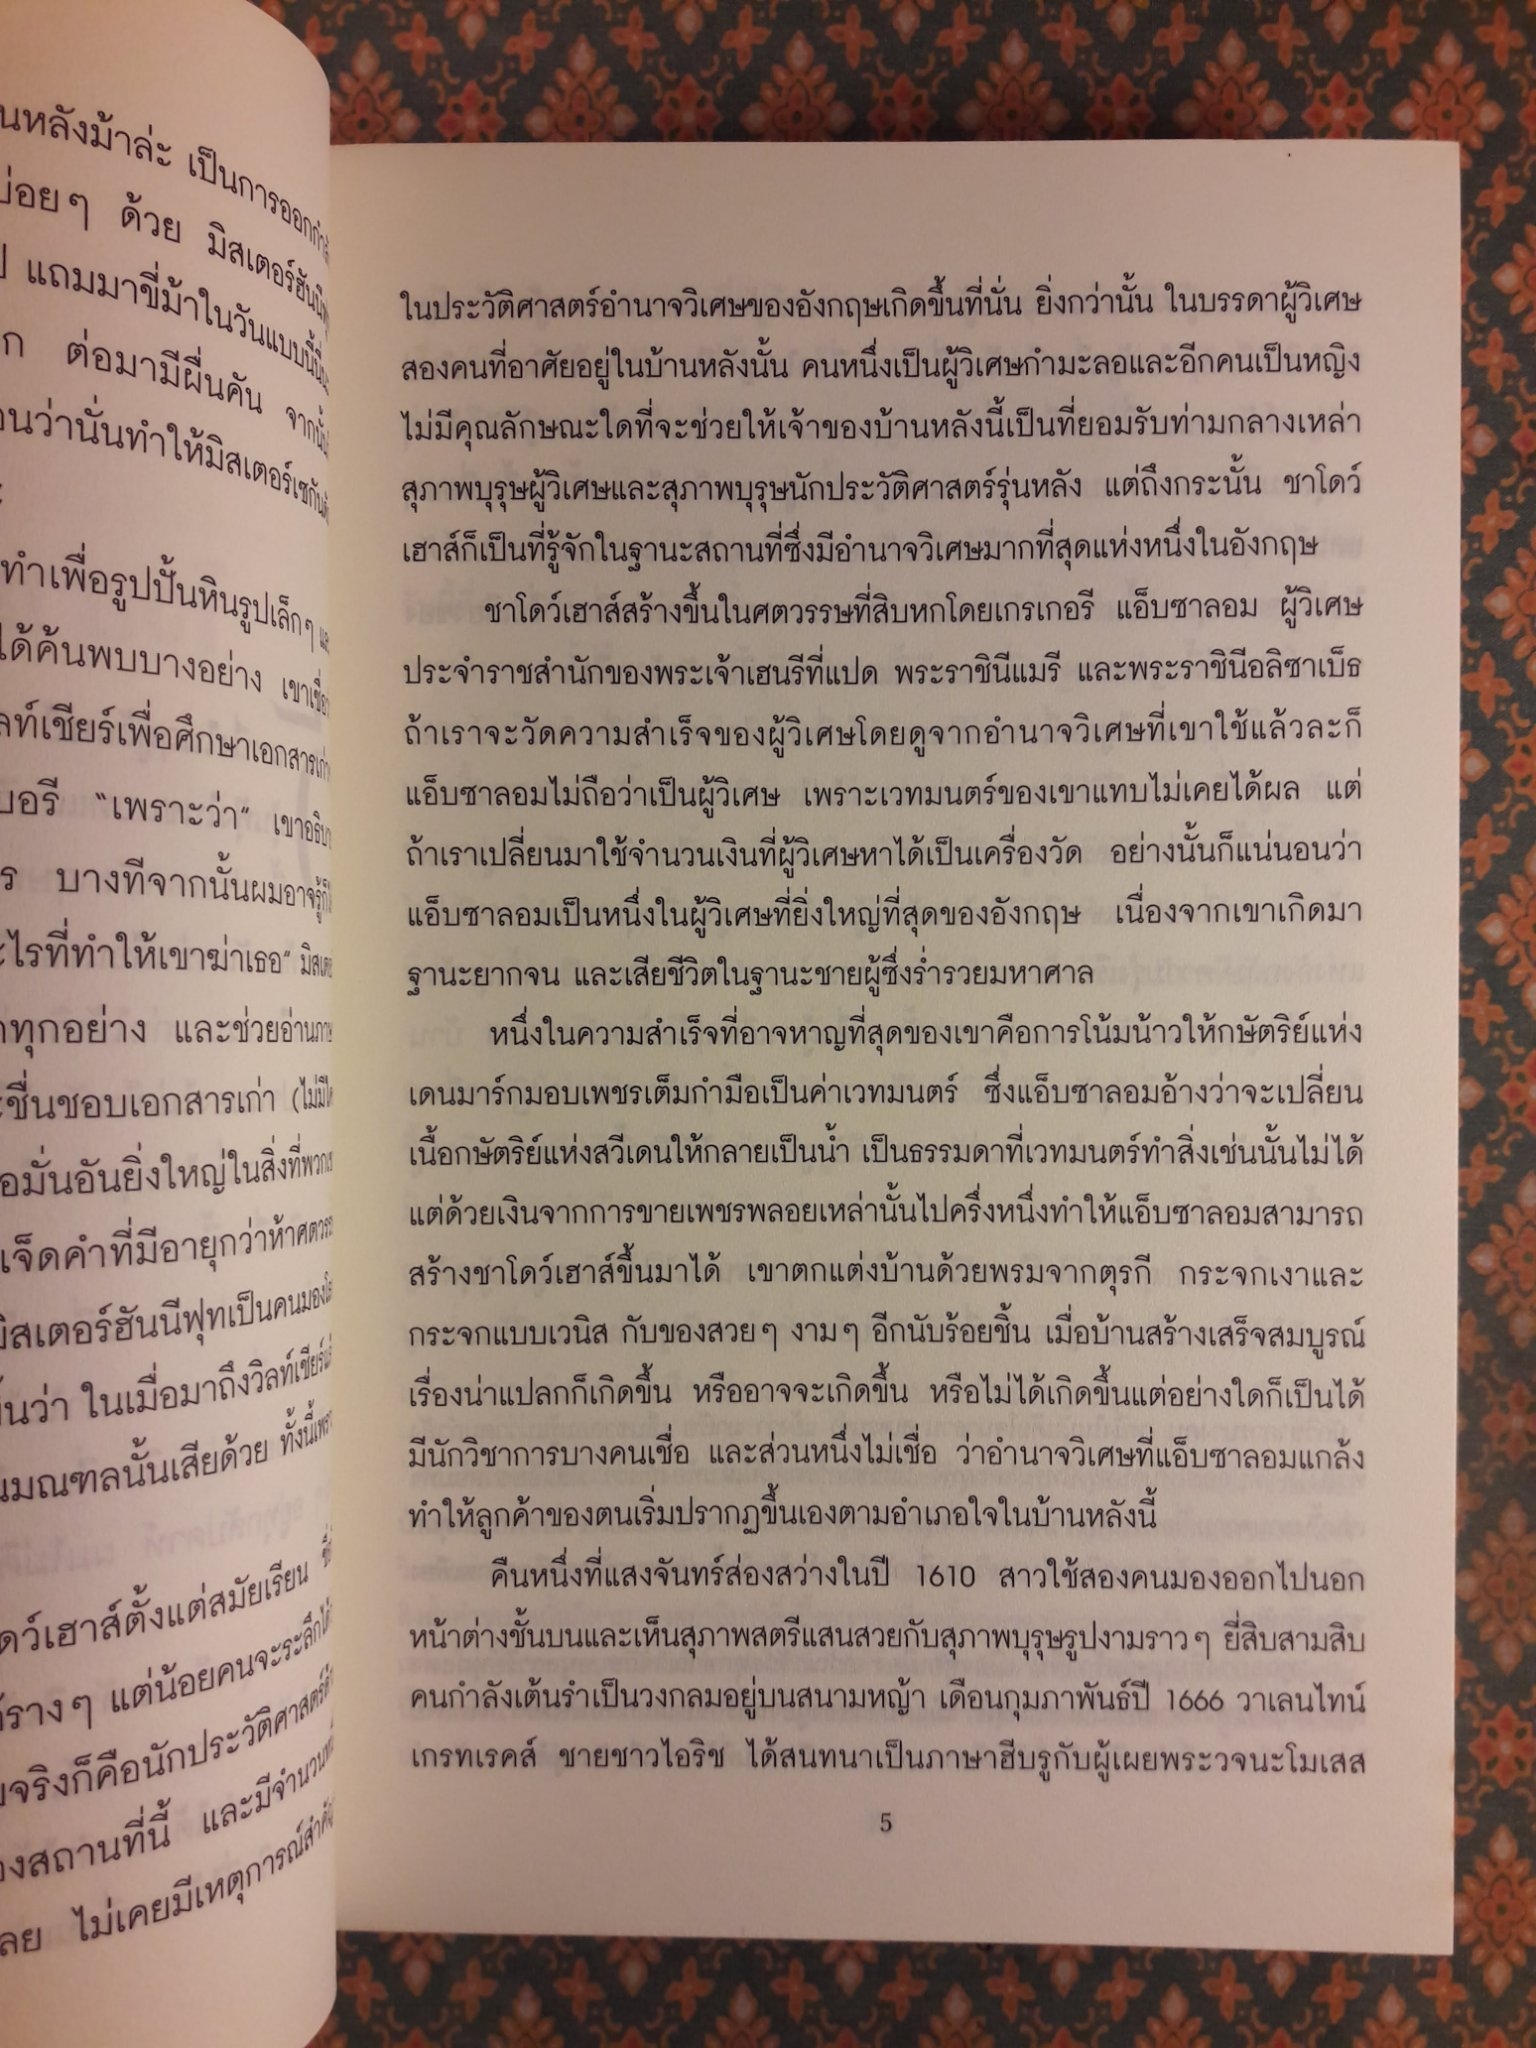 นหลังม้าล่ะ เป็นการออกกำลั
บ่อยๆ ด้วย มิสเตอร์ฮันนีฟุท
แถมมาขี่ม้าในวันแบบนี้
ต่อมามีผื่นคัน จากนั้น
นว่านั่นทำให้มิสเตอร์เซกันดั
ทำเพื่อรูปปั้นหินรูปเล็กๆ
ได้ค้นพบบางอย่าง เขาเชื่อ
ลท์เชียร์เพื่อศึกษาเอกสารเก่า
บอรี "เพราะว่า" เขาอธิบา
ร บางทีจากนั้นผมอาจรู้ก็
ะไรที่ทำให้เขาฆ่าเธอ" มิสเต
ทุกอย่าง และช่วยอ่านภา
ะชื่นชอบเอกสารเก่า (ไม่มี
อมั่นอันยิ่งใหญ่ในสิ่งที่พวกเ
เจ็ดคำที่มีอายุกว่าห้าศตวรร
มิสเตอร์ฮันนีฟุทเป็นคนมอง
นว่า ในเมื่อมาถึงวิลท์เชียร์
นมณฑลนั้นเสียด้วย ทั้งนี้เพรา
ดว์เฮาส์ตั้งแต่สมัยเรียน
ราง ๆ แต่น้อยคนจะระลึกได้
จริงก็คือนักประวัติศาสตร์
งสถานที่นี้ และมีจำนวน
ลย ไม่เคยมีเหตุการณ์สำคั
ในประวัติศาสตร์อำนาจวิเศษของอังกฤษเกิดขึ้นที่นั่น ยิ่งกว่านั้น ในบรรดาผู้วิเศษ
สองคนที่อาศัยอยู่ในบ้านหลังนั้น คนหนึ่งเป็นผู้วิเศษกำมะลอและอีกคนเป็นหญิง
ไม่มีคุณลักษณะใดที่จะช่วยให้เจ้าของบ้านหลังนี้เป็นที่ยอมรับท่ามกลางเหล่า
สุภาพบุรุษผู้วิเศษและสุภาพบุรุษนักประวัติศาสตร์รุ่นหลัง แต่ถึงกระนั้น ชาโดว์
เฮาส์ก็เป็นที่รู้จักในฐานะสถานที่ซึ่งมีอำนาจวิเศษมากที่สุดแห่งหนึ่งในอังกฤษ
ชาโดว์เฮาส์สร้างขึ้นในศตวรรษที่สิบหกโดยเกรเกอรี แอ็บซาลอม ผู้วิเศษ
ประจำราชสำนักของพระเจ้าเฮนรีที่แปด พระราชินีแมรี และพระราชินีอลิซาเบ็ธ
ถ้าเราจะวัดความสำเร็จของผู้วิเศษโดยดูจากอำนาจวิเศษที่เขาใช้แล้วละก็
แอ็บซาลอมไม่ถือว่าเป็นผู้วิเศษ เพราะเวทมนตร์ของเขาแทบไม่เคยได้ผล แต่
ถ้าเราเปลี่ยนมาใช้จำนวนเงินที่ผู้วิเศษหาได้เป็นเครื่องวัด อย่างนั้นก็แน่นอนว่า
แอ็บซาลอมเป็นหนึ่งในผู้วิเศษที่ยิ่งใหญ่ที่สุดของอังกฤษ เนื่องจากเขาเกิดมา
ฐานะยากจน และเสียชีวิตในฐานะชายผู้ซึ่งร่ำรวยมหาศาล
หนึ่งในความสำเร็จที่อาจหาญที่สุดของเขาคือการโน้มน้าวให้กษัตริย์แห่ง
เดนมาร์กมอบเพชรเต็มกำมือเป็นค่าเวทมนตร์ ซึ่งแอ็บซาลอมอ้างว่าจะเปลี่ยน
เนื้อกษัตริย์แห่งสวีเดนให้กลายเป็นน้ำ เป็นธรรมดาที่เวทมนตร์ทำสิ่งเช่นนั้นไม่ได้
แต่ด้วยเงินจากการขายเพชรพลอยเหล่านั้นไปครึ่งหนึ่งทำให้แอ็บซาลอมสามารถ
สร้างชาโดว์เฮาส์ขึ้นมาได้ เขาตกแต่งบ้านด้วยพรมจากตุรกี กระจกเงาและ
กระจกแบบเวนิส กับของสวยๆ งามๆ อีกนับร้อยชิ้น เมื่อบ้านสร้างเสร็จสมบูรณ์
เรื่องน่าแปลกก็เกิดขึ้น หรืออาจจะเกิดขึ้น หรือไม่ได้เกิดขึ้นแต่อย่างใดก็เป็นได้
มีนักวิชาการบางคนเชื่อ และส่วนหนึ่งไม่เชื่อ ว่าอำนาจวิเศษที่แอ็บซาลอมแกล้ง
ทำให้ลูกค้าของตนเริ่มปรากฏขึ้นเองตามอำเภอใจในบ้านหลังนี้
คืนหนึ่งที่แสงจันทร์ส่องสว่างในปี 1610 สาวใช้สองคนมองออกไปนอก
หน้าต่างชั้นบนและเห็นสุภาพสตรีแสนสวยกับสุภาพบุรุษรูปงามราวๆ ยี่สิบสามสิบ
คนกำลังเต้นรำเป็นวงกลมอยู่บนสนามหญ้า เดือนกุมภาพันธ์ปี 1666 วาเลนไทน์
เกรทเรคส์ ชายชาวไอริช ได้สนทนาเป็นภาษาฮีบรูกับผู้เผยพระวจนะโมเสส
5